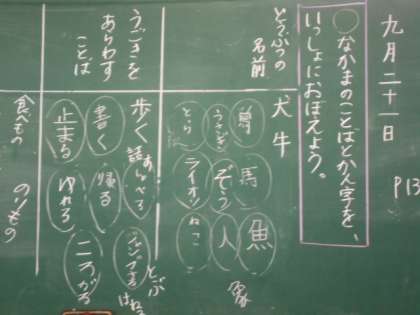 九月二十一日
P13
なかまのことばとかん字を、
いっしょにおぼえよう。
どうぶつの名前
犬 牛
鳥 馬 魚
うさぎ ぞう 人
とら ライオン ねこ
象
うごきを
あらわす
ことば
歩く 話す しゃべる ジャンプする とぶ はねる
書く 帰る ころがる
止まる ゆれる
食べもの
のりもの